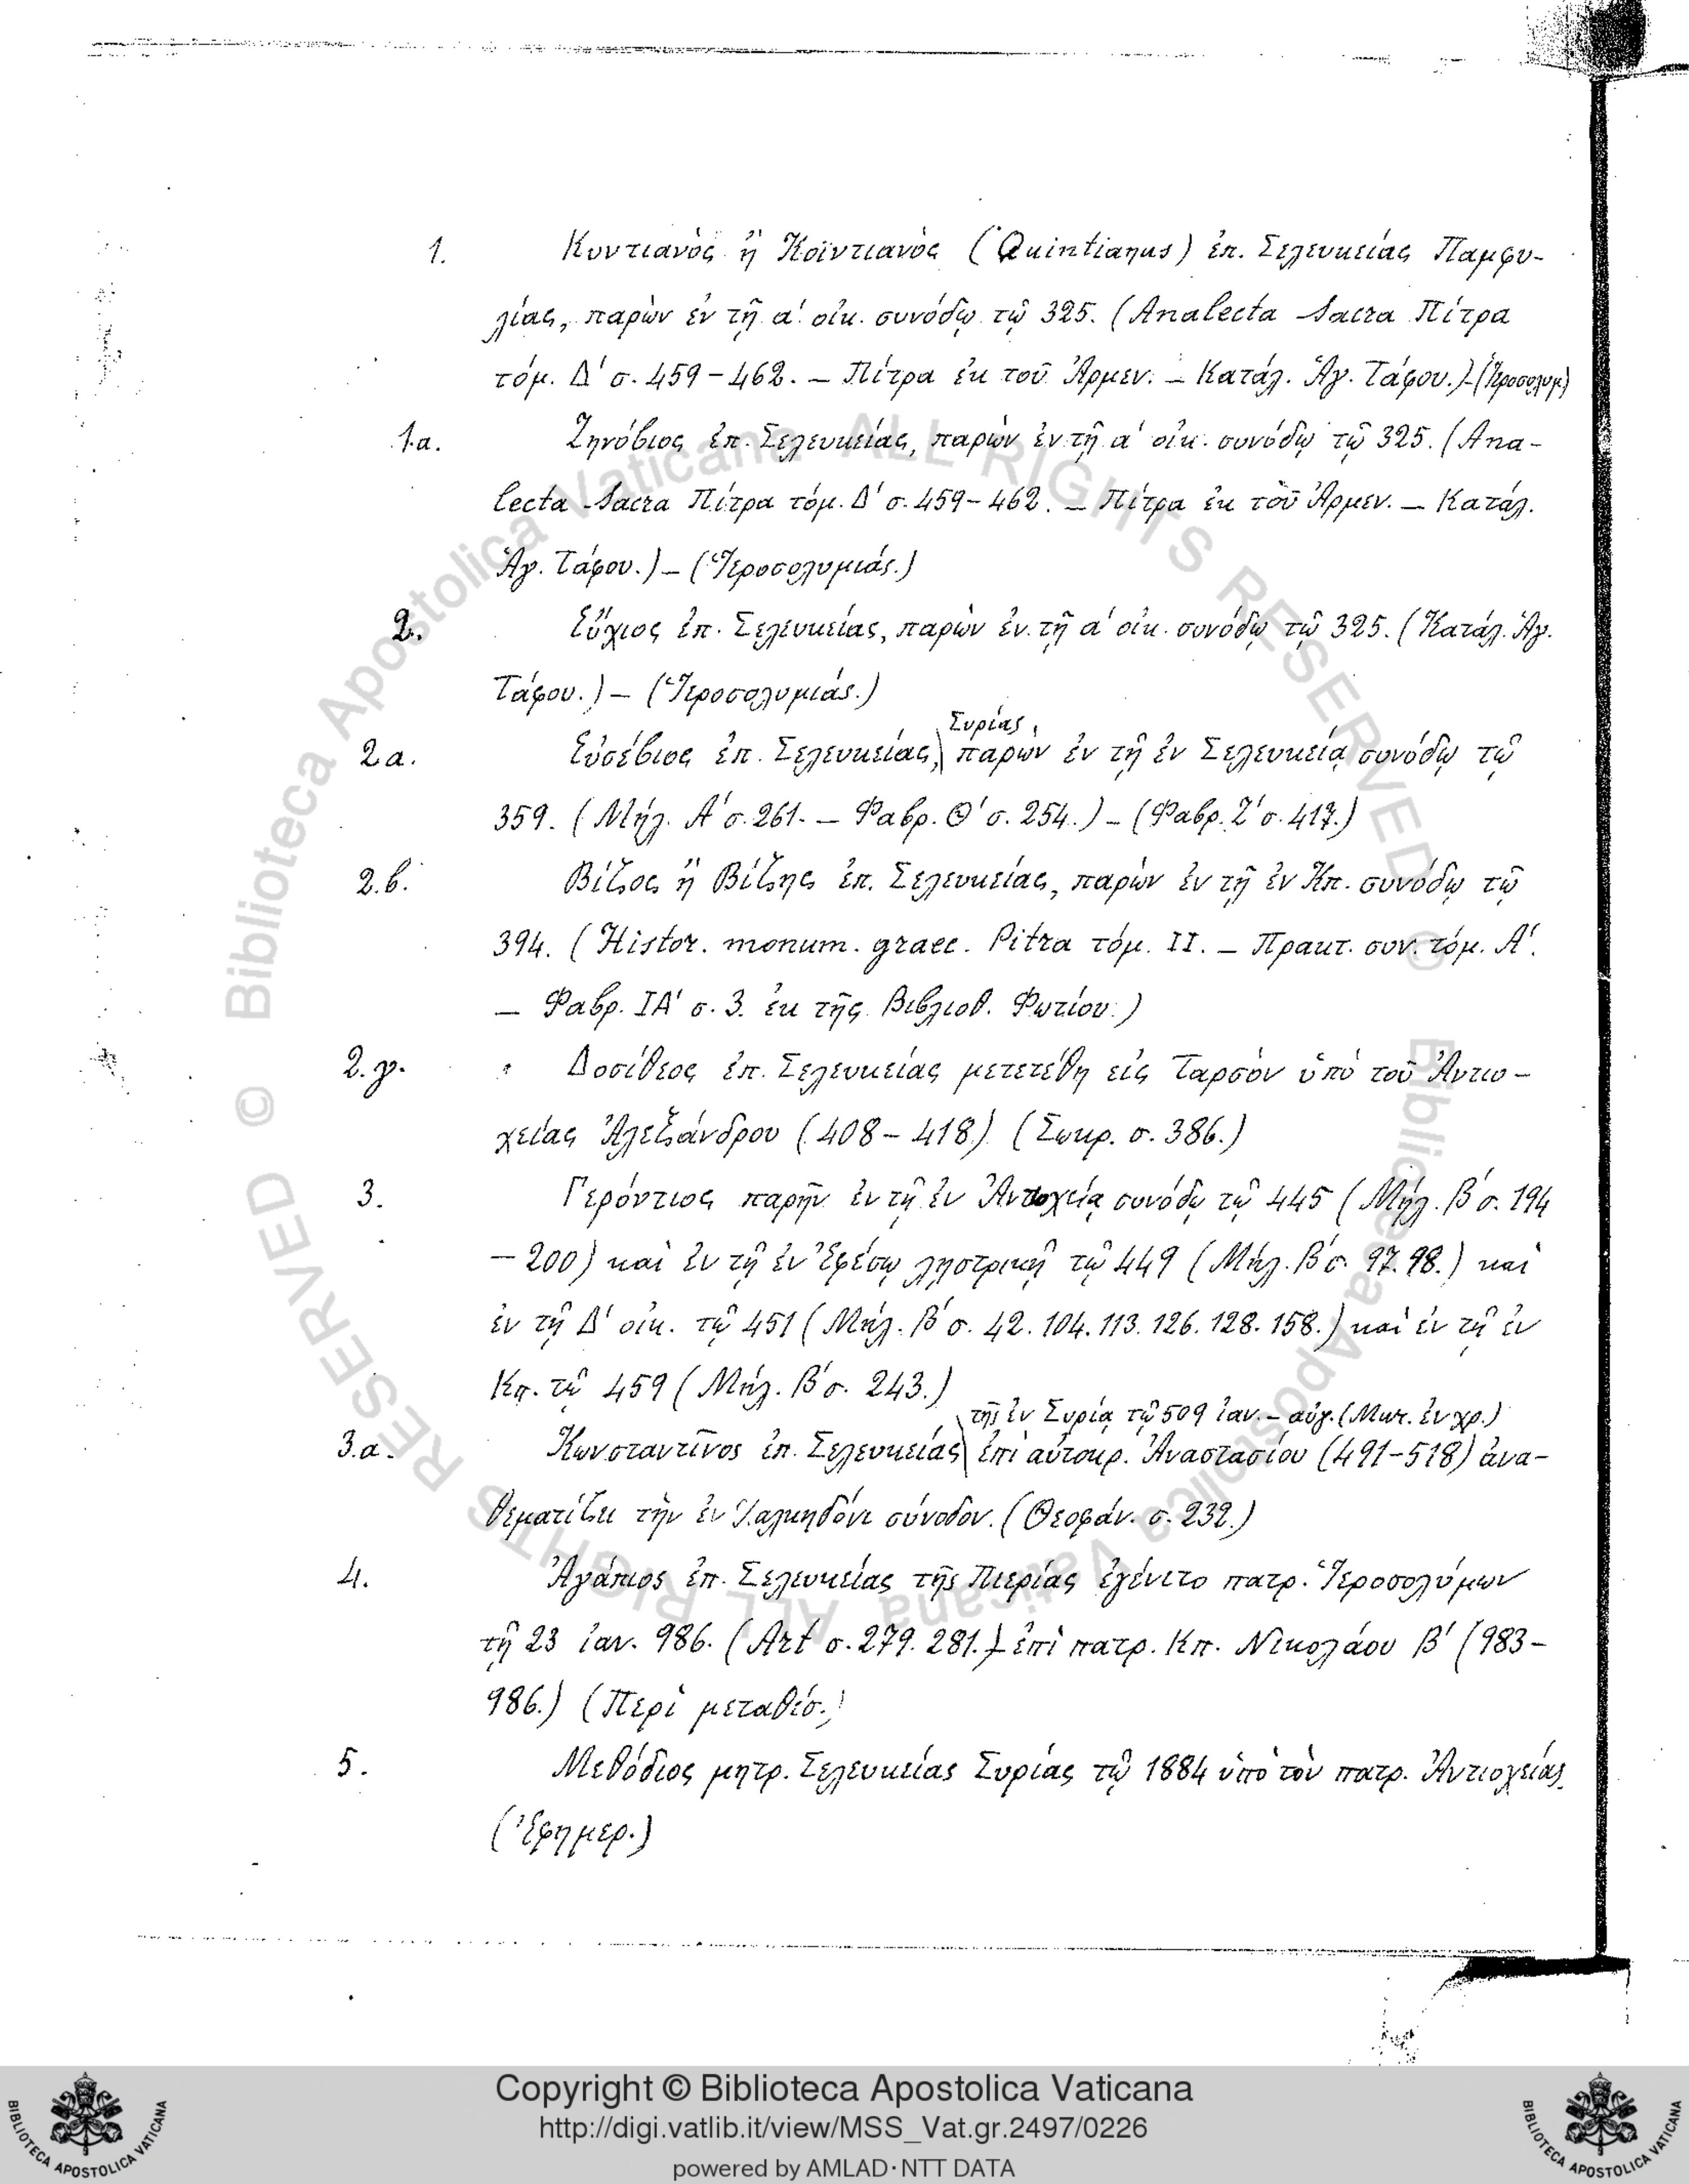 1. Κυντιανὸς ἢ Κοϊντιανὸς (Quintianus) ἐπ. Σελευκείας Παμφυ-
λίας, παρὼν ἐν τῇ α΄ οἰκ. συνόδῳ τῷ 325. (Analecta Sacra Πίτρα
τόμ. Δ΄ σ. 459-462. – Πίτρα ἐκ τοῦ Ἀρμεν. – Κατάλ. Ἁγ. Τάφου.)-(Ἱεροσολυμ)
1.α. Ζηνόβιος ἐπ. Σελευκείας, παρὼν ἐν τῇ α΄ οἰκ. συνόδῳ τῷ 325. (Ana-
lecta Sacra Πίτρα τόμ. Δ΄ σ. 459-462. – Πίτρα ἐκ τοῦ Ἀρμεν. – Κατάλ.
Ἁγ. Τάφου.) – (Ἱεροσολυμιάς.)
2. Εὔχιος ἐπ. Σελευκείας, παρὼν ἐν τῇ α΄ οἰκ. συνόδῳ τῷ 325. (Κατάλ. Ἁγ.
Τάφου.) – (Ἱεροσολυμιάς.)
Συρίας,
2.α. Εὐσέβιος ἐπ. Σελευκείας, παρὼν ἐν τῇ ἐν Σελευκείᾳ συνόδῳ τῷ
359. (Μήλ. Α΄ σ. 261. – Φαβρ. Θ΄ σ. 254.) – (Φαβρ. Ζ΄ σ. 417.)
2.β. Βίζος ἢ Βίζης ἐπ. Σελευκείας, παρὼν ἐν τῇ ἐν Κπ. συνόδῳ τῷ
394. (Histor. monum. graec. Pitra τόμ. II. – Πρακτ. συν. τόμ. Α΄.
– Φαβρ. ΙΑ΄ σ. 3. ἐκ τῆς Βιβλιοθ. Φωτίου.)
2.γ. Δοσίθεος ἐπ. Σελευκείας μετετέθη εἰς Ταρσὸν ὑπὸ τοῦ Ἀντιο-
χείας Ἀλεξάνδρου (408-418) (Σωκρ. σ. 386.)
3. Γερόντιος παρῆν ἐν τῇ ἐν Ἀντιοχείᾳ συνόδῳ τῷ 445 (Μήλ. Β΄ σ. 194
– 200) καὶ ἐν τῇ ἐν Ἐφέσῳ λῃστρικῇ τῷ 449 (Μήλ. Β΄ σ. 97. 98.) καὶ
ἐν τῇ Δ΄ οἰκ. τῷ 451 (Μήλ. Β΄ σ. 42. 104. 113. 126. 128. 158.) καὶ ἐν τῇ ἐν
Κπ. τῷ 459 (Μήλ. Β΄ σ. 243.)
τῆς ἐν Συρίᾳ τῷ 509 ἰαν. – αὐγ. (Μικτ. ἐν χρ.)
3.α. Κωνσταντῖνος ἐπ. Σελευκείας ἐπὶ αὐτοκρ. Ἀναστασίου (491-518) ἀνα-
θεματίζει τὴν ἐν Χαλκηδόνι σύνοδον. (Θεοφάν. σ. 232.)
4. Ἀγάπιος ἐπ. Σελευκείας τῆς Πιερίας ἐγένετο πατρ. Ἱεροσολύμων
τῇ 23 ἰαν. 986. (Art σ. 279. 281.) ἐπὶ πατρ. Κπ. Νικολάου Β΄ (983-
986.) (Περὶ μεταθέσ.)
5. Μεθόδιος μητρ. Σελευκείας Συρίας τῷ 1884 ὑπὸ τὸν πατρ. Ἀντιοχείας
(Ἐφημερ.)
© Biblioteca Apostolica Vaticana ALL RIGHTS RESERVED © Biblioteca Apostolica Vaticana ALL RIGHTS RESERVED
Copyright © Biblioteca Apostolica Vaticana
http://digi.vatlib.it/view/MSS_Vat.gr.2497/0226
powered by AMLAD·NTT DATA
BIBLIOTECA APOSTOLICA VATICANA
BIBLIOTECA APOSTOLICA VATICANA